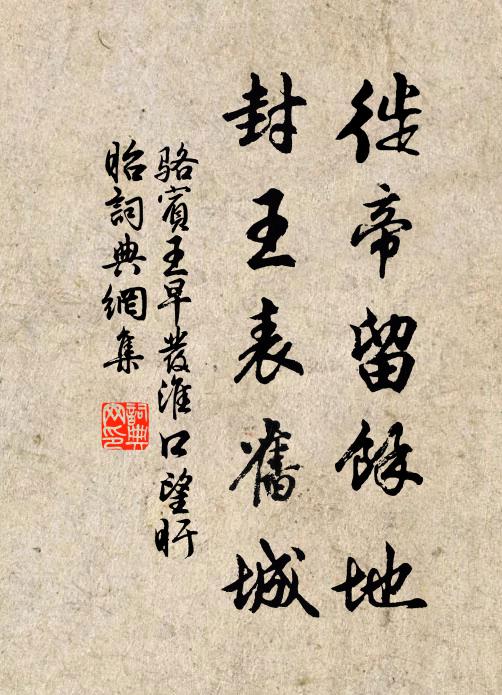 徙帝留餘地
封王表舊城
駱賓王早發淮口望盱
眙詞典網集
詞典
网印